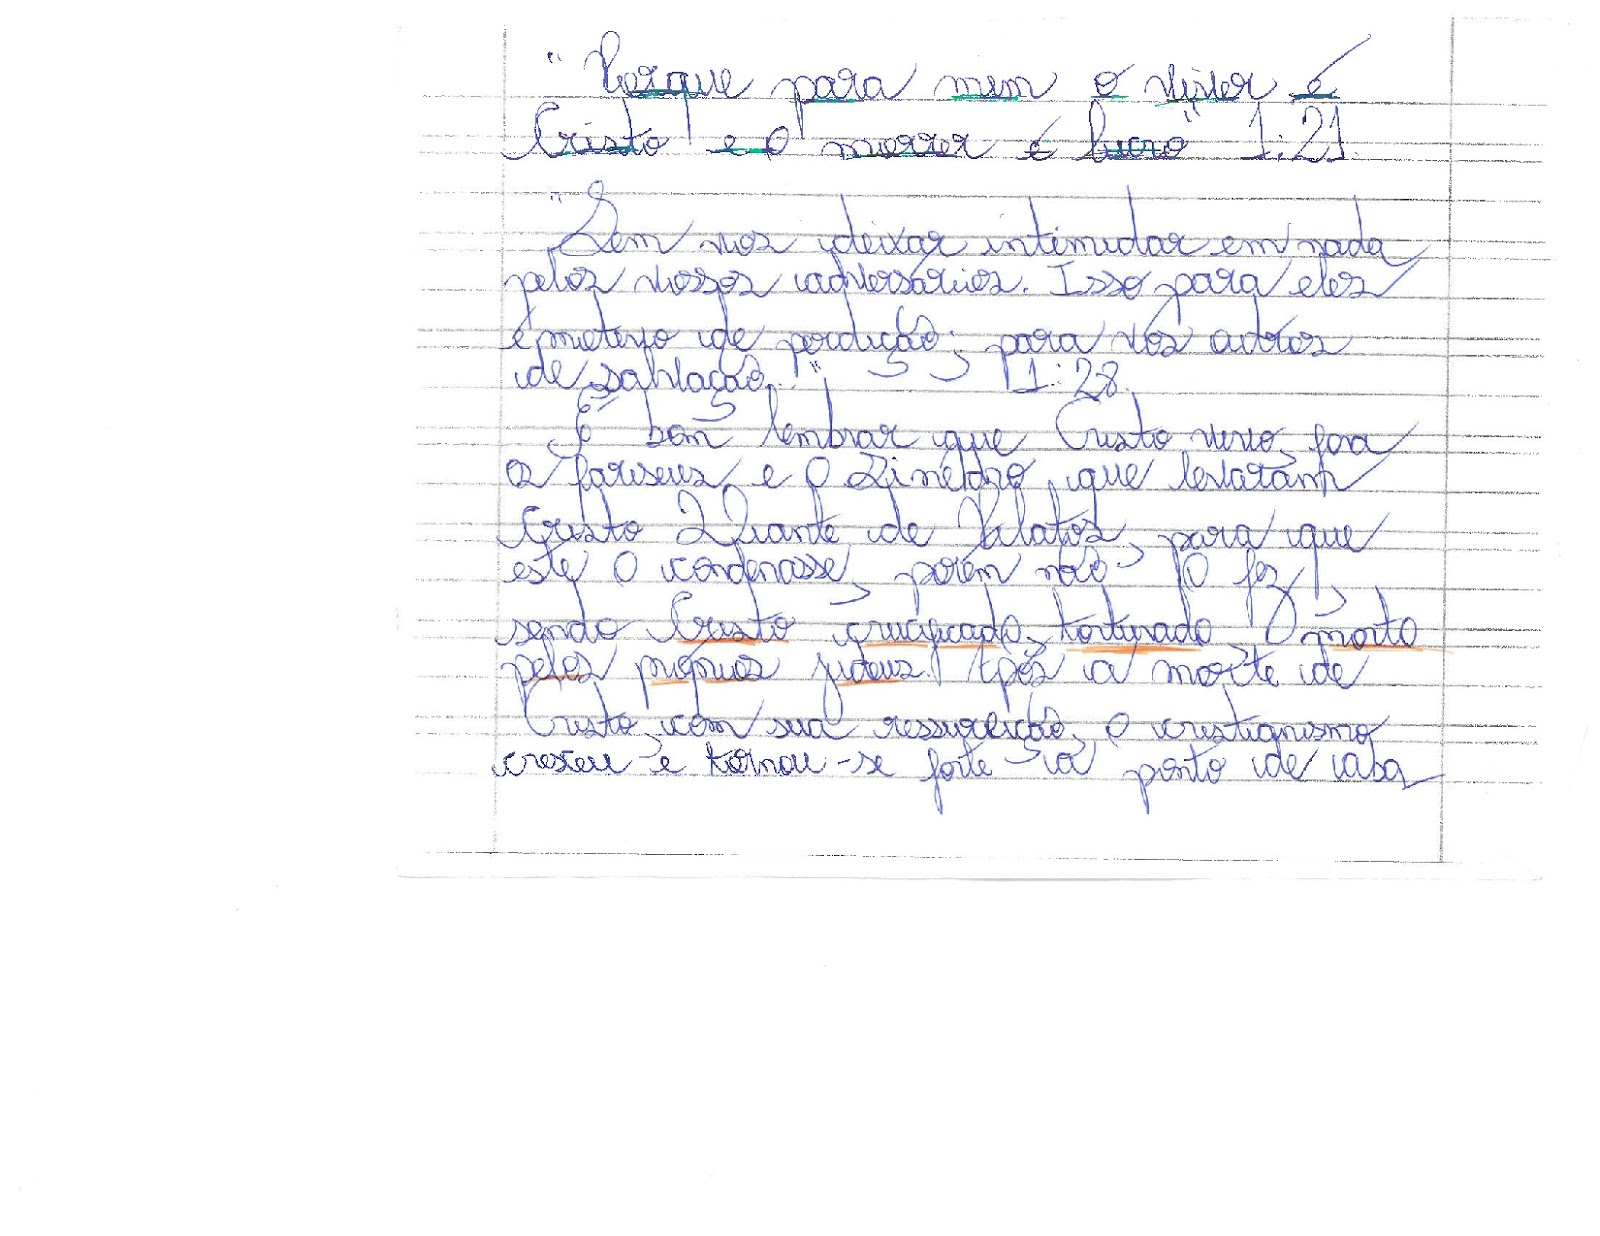 "Porque para mim o viver é
Cristo e o morrer é lucro" 1:21.
"Sem vos deixar intimidar em nada
pelos vossos adversários. Isso para eles
é motivo de perdição; para vós outros
de salvação..." 1:28.
É bom lembrar que Cristo vivo, fora
os fariseus, e o Sinédrio, que levaram
Cristo diante de Pilatos, para que
este o condenasse, porém não o fez,
sendo Cristo crucificado, torturado e morto
pelos próprios judeus. Após a morte de
Cristo, com sua ressurreição, o cristianismo
cresceu e tornou-se forte a ponto de